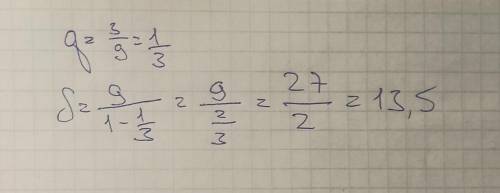 q = 3/9 = 1/3
S = 9/(1 - 1/3) = 9/(2/3) = 27/2 = 13,5